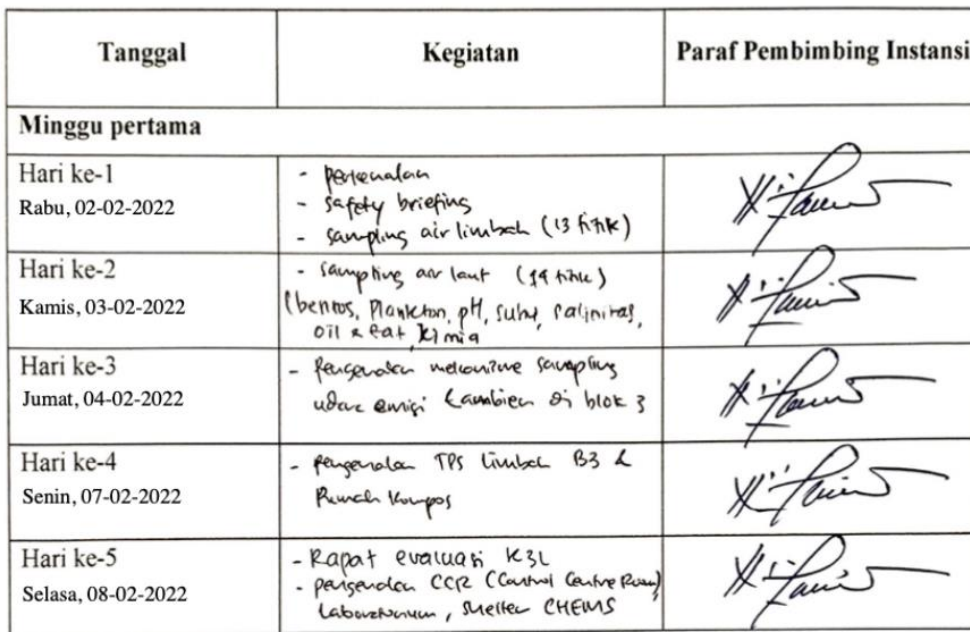 Tanggal
Kegiatan
Paraf Pembimbing Instansi
Minggu pertama
Hari ke-1
Rabu, 02-02-2022
- perkenalan
- safety briefing
- sampling air limbah (13 titik)
Hari ke-2
Kamis, 03-02-2022
- sampling air laut (19 titik)
(bentos, Plankton, pH, suhu, salinitas,
oil & fat, kimia
Hari ke-3
Jumat, 04-02-2022
- Pengenalan mekanisme sampling
udara emisi & ambien di blok 3
Hari ke-4
Senin, 07-02-2022
- pengenalan TPS limbah B3 &
Rumah Kompos
Hari ke-5
Selasa, 08-02-2022
- Rapat evaluasi K3L
- pengenalan CCR (Control Centre Room)
Laboratorium, Shelter CHEMS